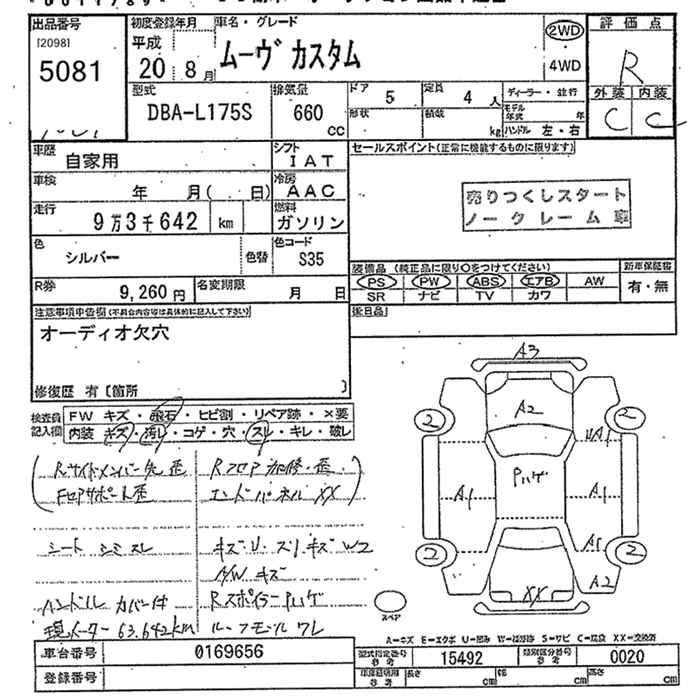 出品番号
[2098]
5081
初度登録年月
平成
20 8月
車名・グレード
ムーヴ カスタム
2WD
4WD
評価点
R
外装 内装
C C
型式
DBA-L175S
排気量
660
CC
ドア 5
定員 4 人
形状
積載 kg
ディーラー・並行
モデル年式 年
ハンドル 左・右
車歴 自家用
シフト
IAT
セールスポイント(正常に機能するものに限ります)
車検 年 月( 日)
冷房
AAC
売りつくしスタート
ノークレーム車
走行 9万3千642 km
燃料
ガソリン
色 シルバー 色替
色コード
S35
装備品 (純正品に限り○をつけてください)
新車保証書
PS PW ABS エアB AW
SR ナビ TV カワ
有・無
R券 9,260円
名変期限 月 日
後日品
注意事項申告欄(不具合内容等は具体的に記入して下さい)
オーディオ欠穴
修復歴 有 [箇所 ]
検査員記入欄
FW キズ・飛石・ヒビ割・リペア跡・×要
内装 キズ・汚レ・コゲ・穴・スレ・キレ・破レ
Rサイドメンバー先歪
Rフロア 修・歪
Fロアサポート歪
エンドパネル XX
シート シミ スレ
キズ・U・スリキズ W2
A/W キズ
ハンドル カバー付
RスポイラーPハゲ
現メーター 63.642km
ルーフモール ワレ
A3
A2
2
2
Pハゲ
A1
A1
2
2
A2
XX
スペア
A=キズ E=エクボ U=凹み W=補修跡 S=サビ C=腐食 XX=交換済
車台番号 0169656
型式指定番号 参考 15492
類別区分番号 参考 0020
登録番号
車庫証明用 参考 長さ cm 幅 cm 高さ cm